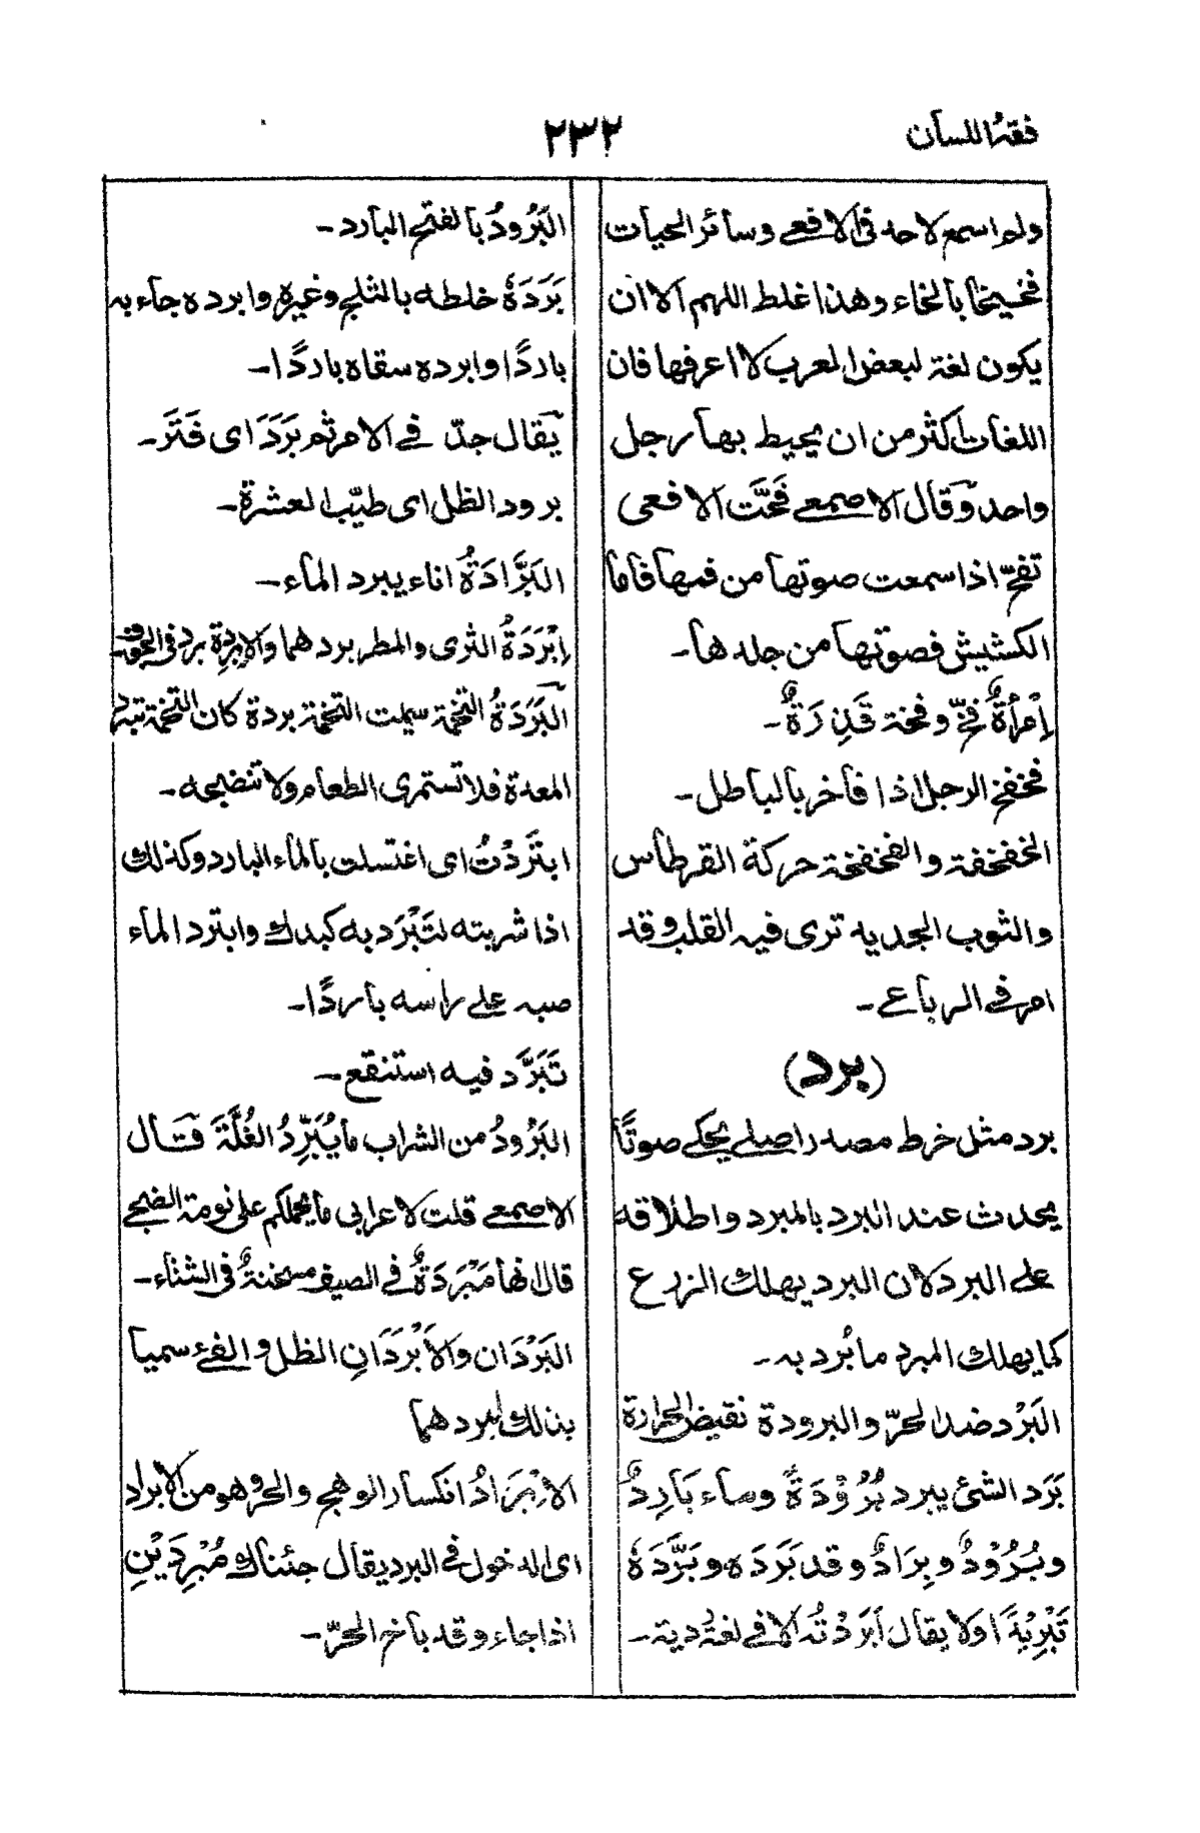 فقه اللسان
٢٣٢
ولو اسمع لاحد فى الافعے وسائر الحيات
فخيخا بالخاء وهذا غلط اللهم الا ان
يكون لغة لبعض العرب لا اعرفها فان
اللغات اكثر من ان يحيط بها رجل
واحد وقال الاصمعے فَحَّت الافعى
تفحّ اذا سمعت صوتها من فمها فاما
الكشيش فصوتها من جلدها۔
اِمْرأةٌ فخّ و فخة قَذِرَةٌ۔
فخفخ الرجل اذا فاخر بالباطل۔
الخفخفة والفخفخة حركة القرطاس
والثوب الجديد ترى فيه القلب وقد
امر فے الرباعے۔
(برد)
برد مثل خرط مصدر اصلے يحكے صوتًا
يحدث عند البرد بالمبرد واطلاقه
علے البرد لان البرد يهلك الزرع
كما يهلك المبرد ما بُرد به۔
البَرْد ضد الحرّ والبرودة نقيض الحرارة
بَرَد الشئ يبرد بُرُوْدَةً وماء بَارِدٌ
وبُرُوْدٌ وبِرَادٌ وقد بَرَدَه وبَرَّدَهٗ
تَبْرِيْدًا ولا يقال اَبْرَدْتُه الا فے لغة ردية۔
البَرُودُ بالفتح البارد۔
بَرَدَهٗ خلطه بالثلج وغيره وابرده جاء به
باردًا وابرده سقاه باردًا۔
يقال جدّ فے الامر ثم بَرَدَ اى فَتَرَ۔
برود الظل اى طيّب العشرة۔
البَرَّادَةُ اناء يبرد الماء۔
اِبْرَدَةُ الثرى والمطر بردهما والابردة برد فى الجوف۔
البَرَدَةُ التخمة سميت التخمة بردة كان التخمة تبرد
المعدة فلا تستمرى الطعام ولا تنضجه۔
ابتَرَدْتُ اى اغتسلت بالماء البارد وكذلك
اذا شربته لتَبْرَد به كبدك وابترد الماء
صبه علے راسه باردًا۔
تَبَرَّد فيه استنقع۔
البَرُودُ من الشراب ما يُبَرِّدُ الغُلَّةَ قال
الاصمعے قلت لاعرابى ما يحملكم على نومة الضحے
قال انها مَبْرَدَةٌ فے الصيف مسخنةٌ فى الشتاء۔
البَرْدَان والاَبْرَدَانِ الظل والفئ سميا
بذلك لبردهما
الاِبْرَادُ انكسار الوهج والحر وهو من الابراد
اى الدخول فے البرد يقال جئناك مُبْرِدَيْنِ
اذا جاء وقد باخ الحرّ۔